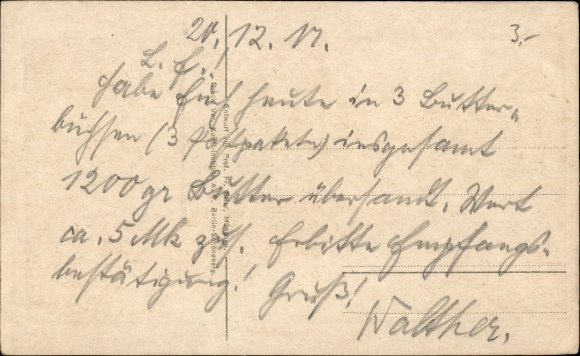 20.12.17.
3,-
L. E.!
Habe Euch heute in 3 Butter-
büchsen (3 Postpakete) insgesamt
1200 gr Butter übersandt. Wert
ca. 5 Mk zus. Erbitte Empfangs-
bestätigung! Gruß!
Walther.
Entwurf Prof. Fr.
Berlin-Schöneberg